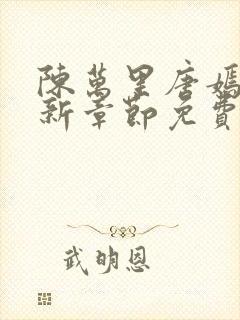 陳萬里唐嫣
新章節免費
武明恩